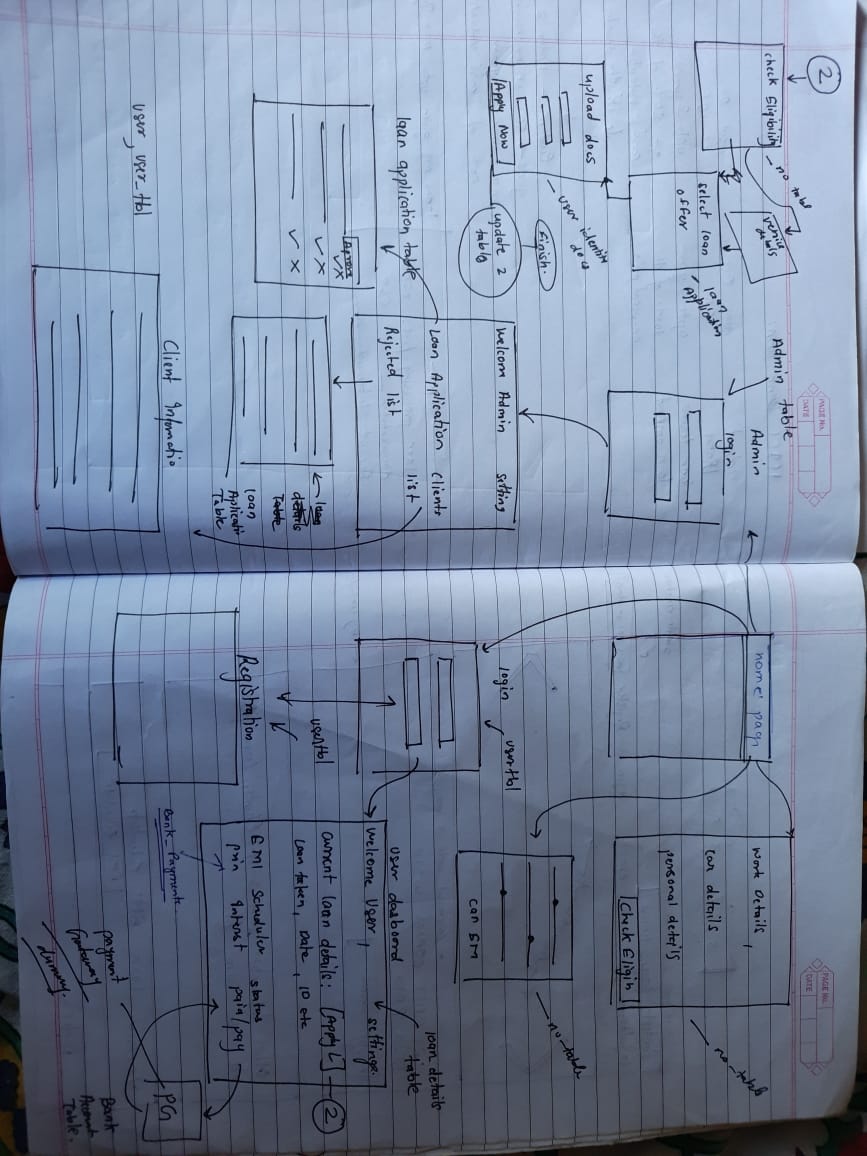 2
PAGE No.
DATE
check Eligibility
no tabl
vehice
details
select loan
offer
loan
Application
upload docs
user identity
docs
Apply Now
Finish.
update 2
table
Admin table
Admin
login
Welcom Admin setting
Loan Application clients
list
Rejected list
loan application table
Aprove
✓×
✓ ×
✓ ×
loan
details
Table
loan
Aplicatin
Table
Client Informatio
user, user_tbl
PAGE No.
DATE
home pag
work Details,
car details
personal details
Check Eligin
no-table
no-table
login
user tbl
user dasboord
loan details
table
welcome User, settings.
current loan details: [Apply L] 2
Loan taken, Date, ID etc
EMI Scheduler status
prin Interist paid/pay
user tbl
Registration
Bank_Payments
PG
payment
Gateway
dummy.
Bank
Account
Table.